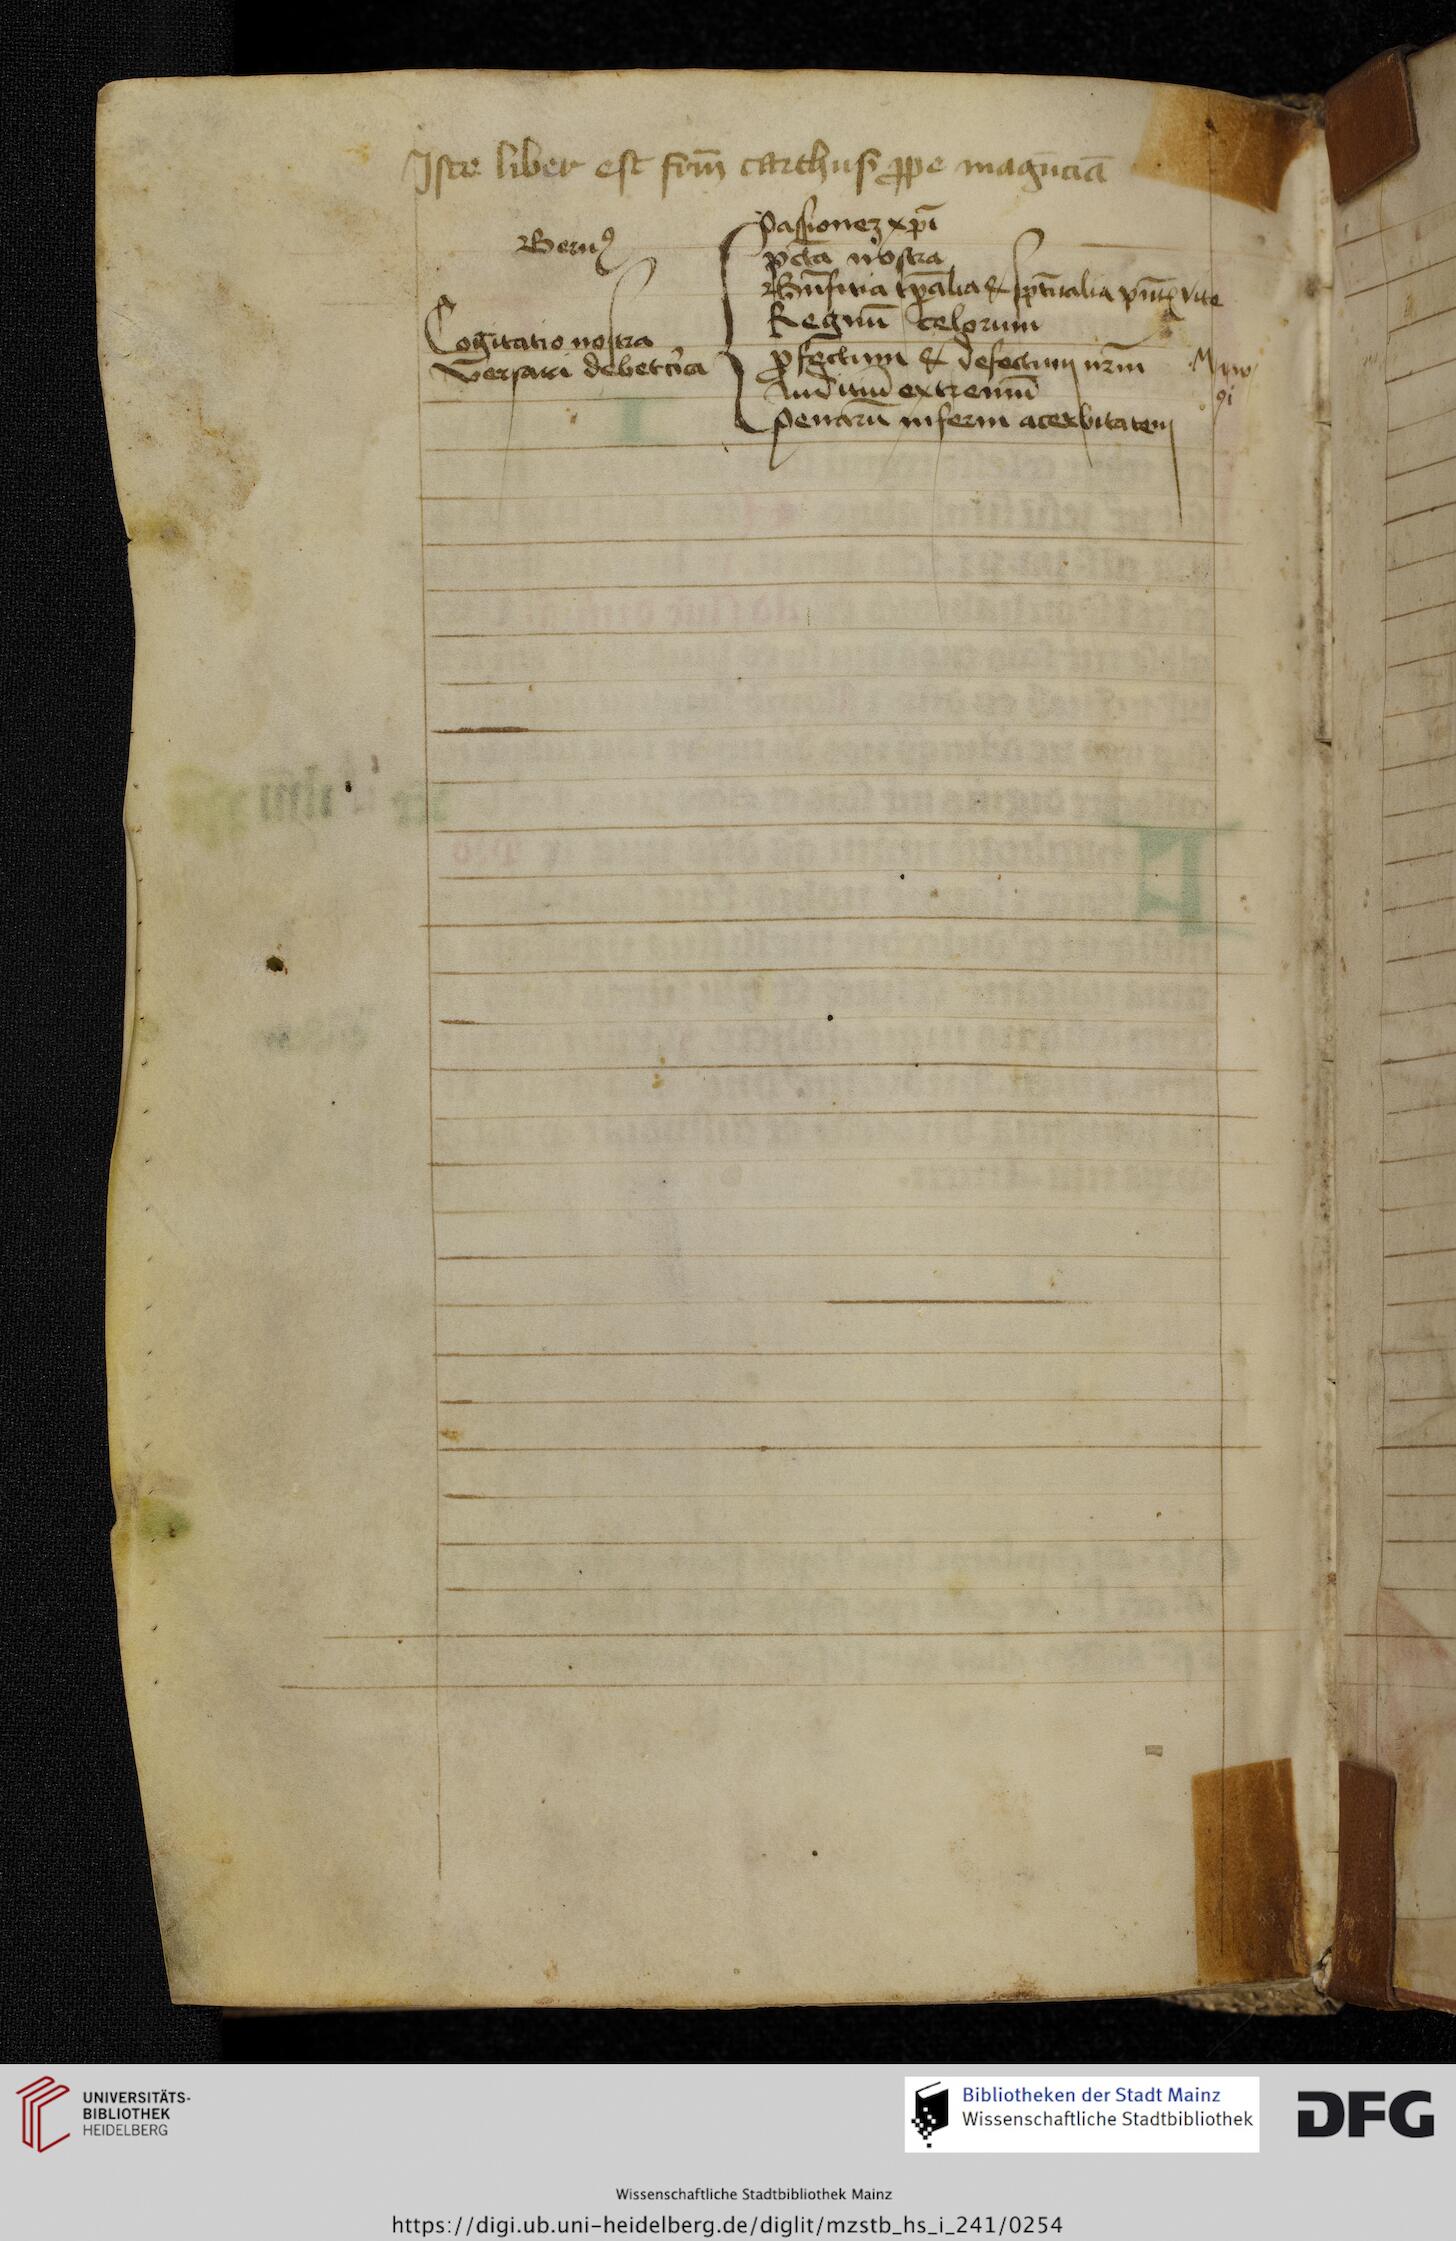 Iste liber est frm̄ carthus̄ ꝓpe magūciā
Bernꝰ
Cogitatio nostra
versari debet cīca
Passionez xp̄i
pctā nostra
Bn̄ficia tp̄alia & sp̄ualia
vite
Regnū celorum
ꝓfectum & defectum nr̄m
Iudiciū extremū
Penarū inferni acerbitatem
UNIVERSITÄTS-
BIBLIOTHEK
HEIDELBERG
Bibliotheken der Stadt Mainz
Wissenschaftliche Stadtbibliothek
DFG
Wissenschaftliche Stadtbibliothek Mainz
https://digi.ub.uni-heidelberg.de/diglit/mzstb_hs_i_241/0254